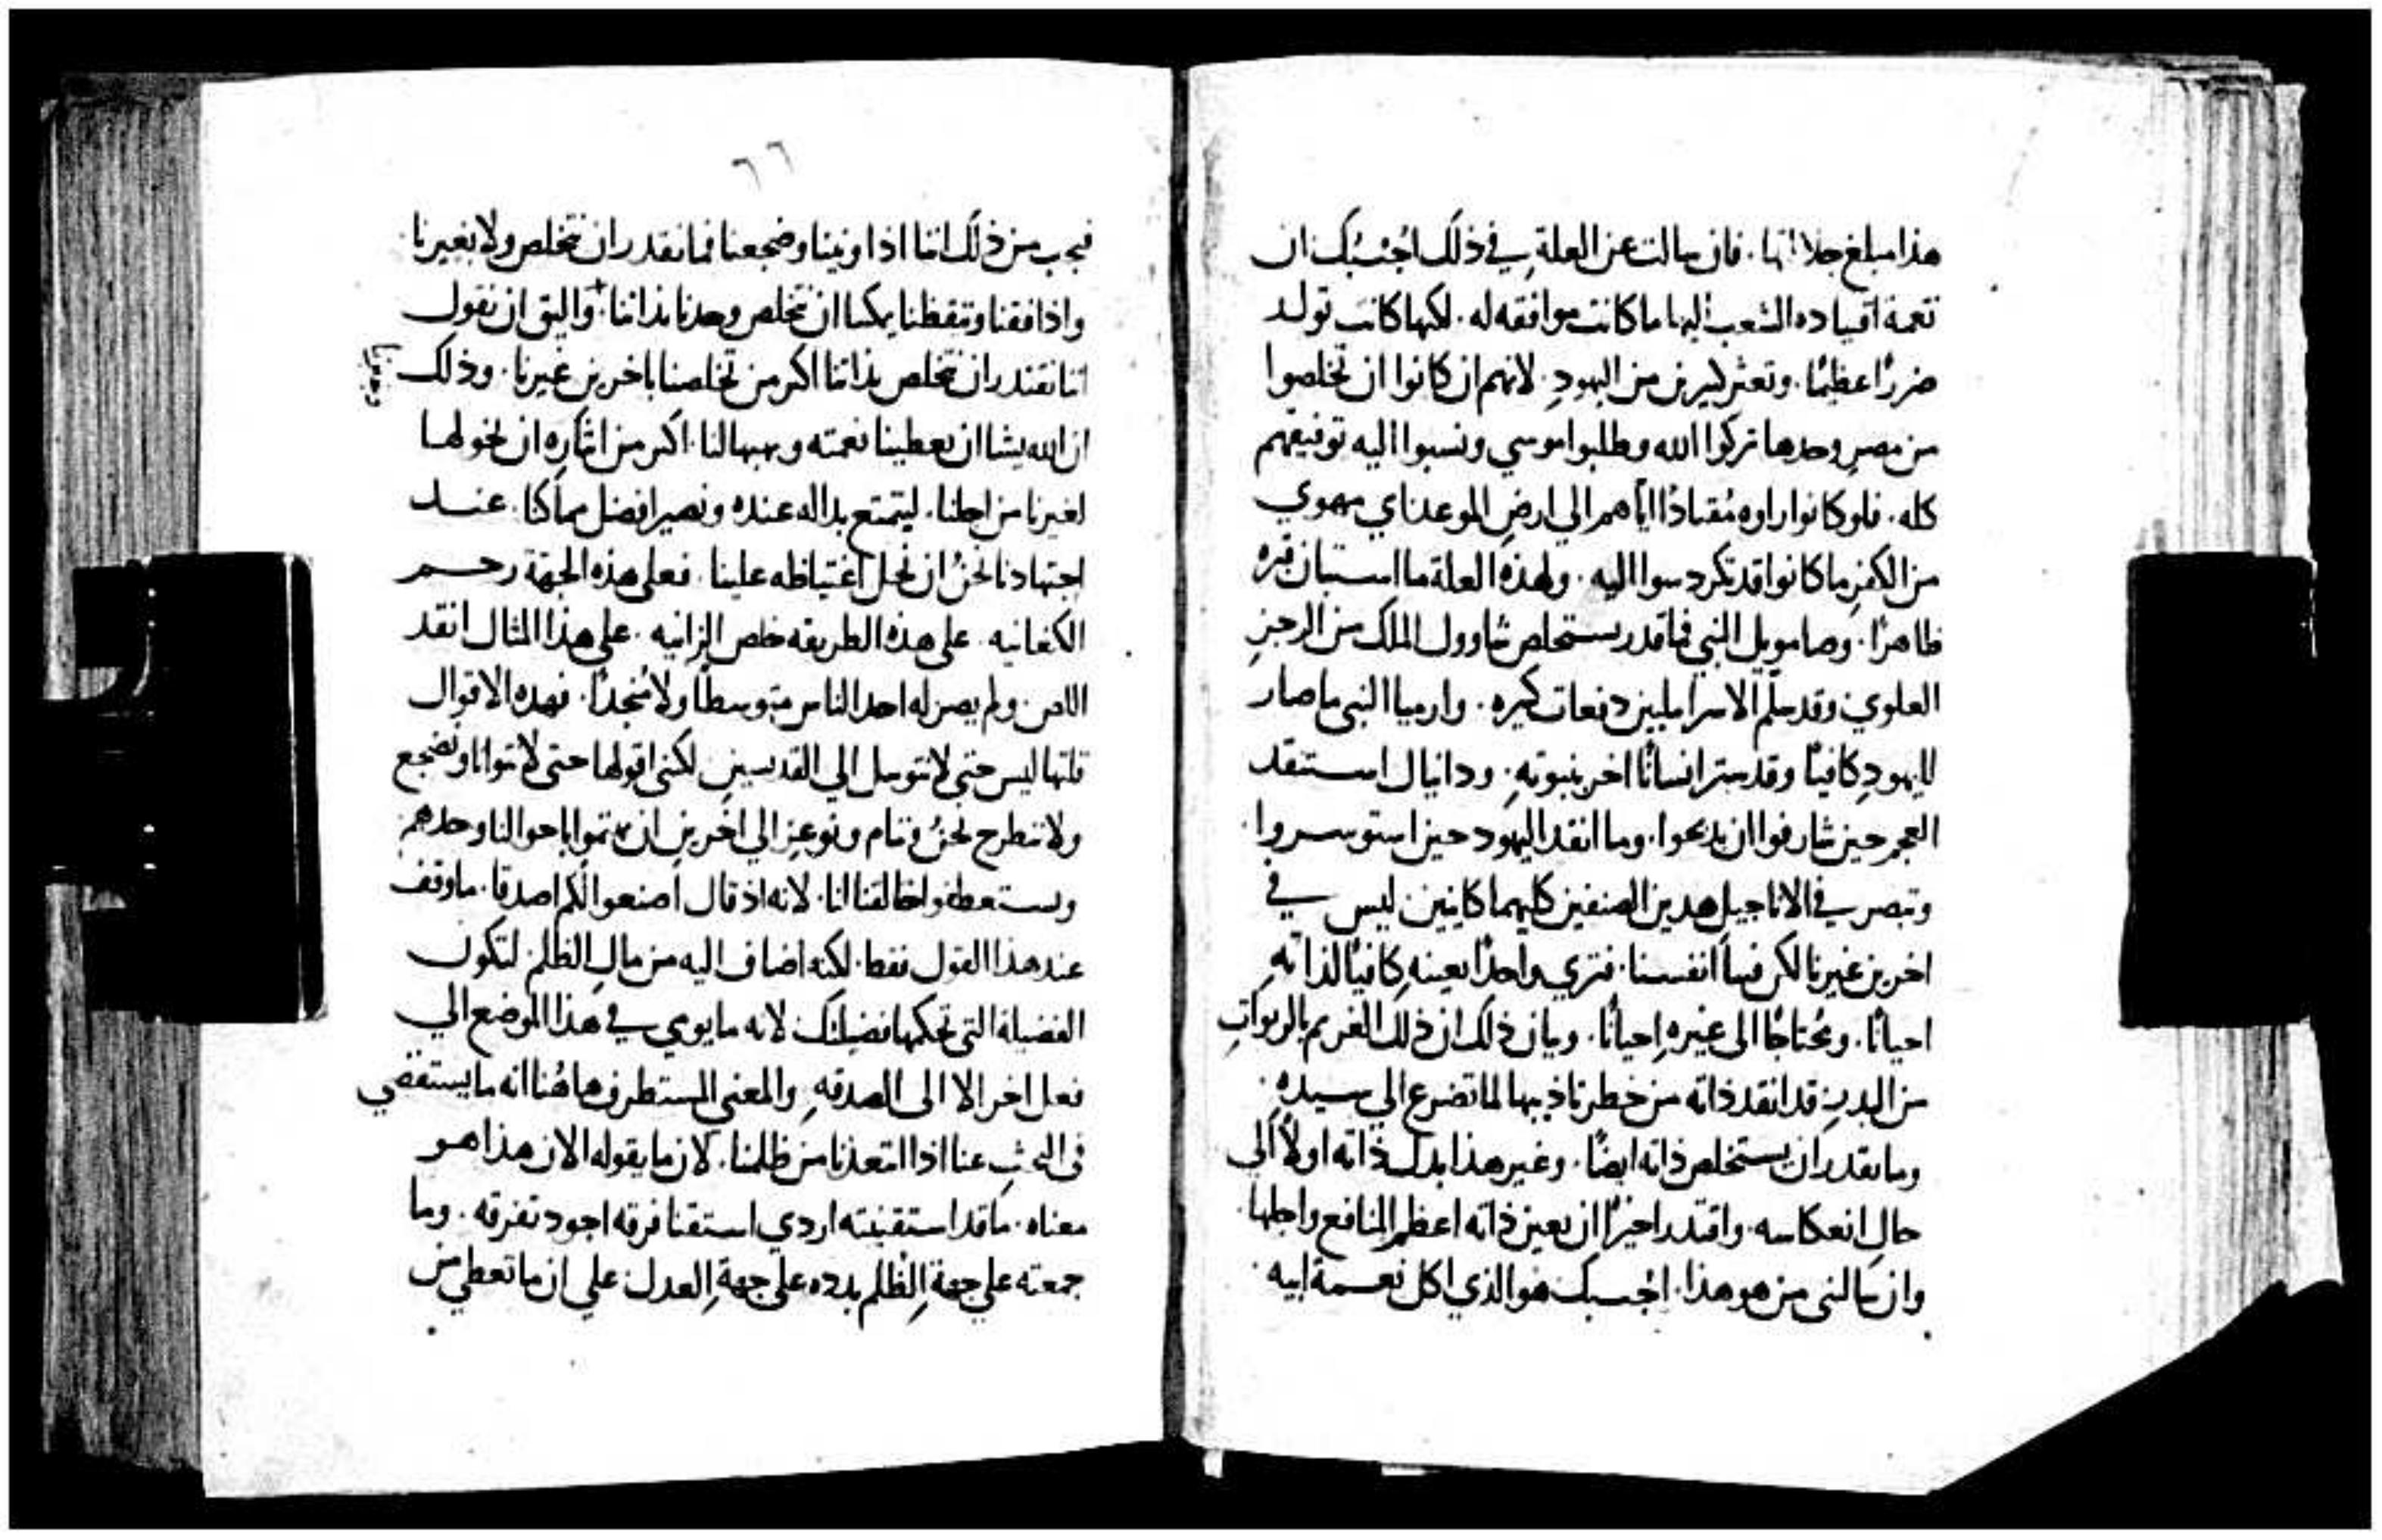 هذا مبلغ جلالتها. فان سالت عن العلة في ذلك اجبتك ان
نعمة اقتياده الشعب اليها ما كانت موافقه له. لكنها كانت تولد
ضررًا عظيمًا. وتعثر كثيرين من اليهودِ. لانهم ان كانوا ان تخلصوا
من مصر وحدها تركوا الله وطلبوا موسي ونسبوا اليه توفيقهم
كله. فلو كانوا راوه مُقتادًا اياهم الي ارضِ الموعد اي مهوي
من الكفرِ ما كانوا قد تكردسوا اليه. ولهذه العلة ما استبان قبره
ظاهرًا. وصامويل النبي فما قدر يستخلص شاوول الملك من الرجزِ
العلوي وقد سلّم الاسراييليين دفعات كثيره. وارميا النبي ما صار
لليهودِ كافيًا وقد ستر انسانًا اخر بنبوتهِ. ودانيال استنقد
العجم حين شارفوا ان يذبحوا. وما انقد اليهود حين استوسروا.
وتبصر في الاناجيلِ هدين الصنفين كليهما كاينين ليس في
اخرين غيرنا لكن فينا انفسنا. فتري واحدًا بعينهِ كافيًا لذاتهِ
احيانًا. ومُحتاجًا الى غيرهِ احيانًا. وبيان ذلك ان ذلك الغريم بالربواتِ
من الدينِ قد انقد ذاته من خطرِ تاذيبها لما تضرع الي سيدهِ.
وما يقدر ان يستخلص ذاته ايضًا. وغير هذا بدل ذاته اولاً الي
حالِ انعكاسه. واقتدر اخيرًا ان يعين ذاته اعظم المنافع واجلها.
وان سالتني من هو هذا. اجبتك هو الذي اكل نعمة ابيه.
٦٦
فيجب من ذلك اننا اذا ونينا وضجعنا فما نقدر ان نتخلص ولا بغيرنا
واذا فقنا وتيقظنا يمكننا ان نتخلص وحدنا بذاتنا. واليق ان نقول
اننا نقتدر ان نتخلص بذاتنا اكثر من تخلصنا باخرين غيرنا. وذلك
ان الله يشا ان يعطينا نعمته ويهبها لنا. اكثر من ايثارهِ ان يخولها
لغيرنا من اجلنا. ليتمتع بداله عنده ونصير افضل مما كنا. عند
اجتهادنا نحنُ ان نحل اغتياظه علينا. فعلي هذه الجهة رحم
الكنعانيه. على هذه الطريقه خلص الزانيه. علي هذا المثال انقد
اللص. ولم يصر له احد الناس متوسطًا ولا مُنجدًا. فهده الاقوال
قلتها ليس حتي لا نتوسل الي القديسين لكنني اقولها حتى لا نتوانا ونضجع
ولا ننطرح نحنُ وننام ونوعز الي اخرين ان يهتموا باحوالنا وحدهم
ويستعطفوا خالقنا لنا. لانه اذ قال اصنعوا لكم اصدقا. ما وقف
عند هذا القول فقط. لكنه اضاف اليه من مالِ الظلم. لتكون
الفضيلة التي تحكمها فضيلتك لانه ما يومي في هذا الموضع الي
فعل اخر الا الى الصدقهِ. والمعني المستطرف هاهُنا انه ما يستقصي
في البحثِ عنا اذا ابتعدنا من ظلمنا. لان ما يقوله الان هذا هو
معناه. ما قد استقنيته اردي استقنا فرقه اجود تفرقه. وما
جمعته علي جهةِ الظلم بدده علي جهةِ العدل. علي ان ما تعطي من